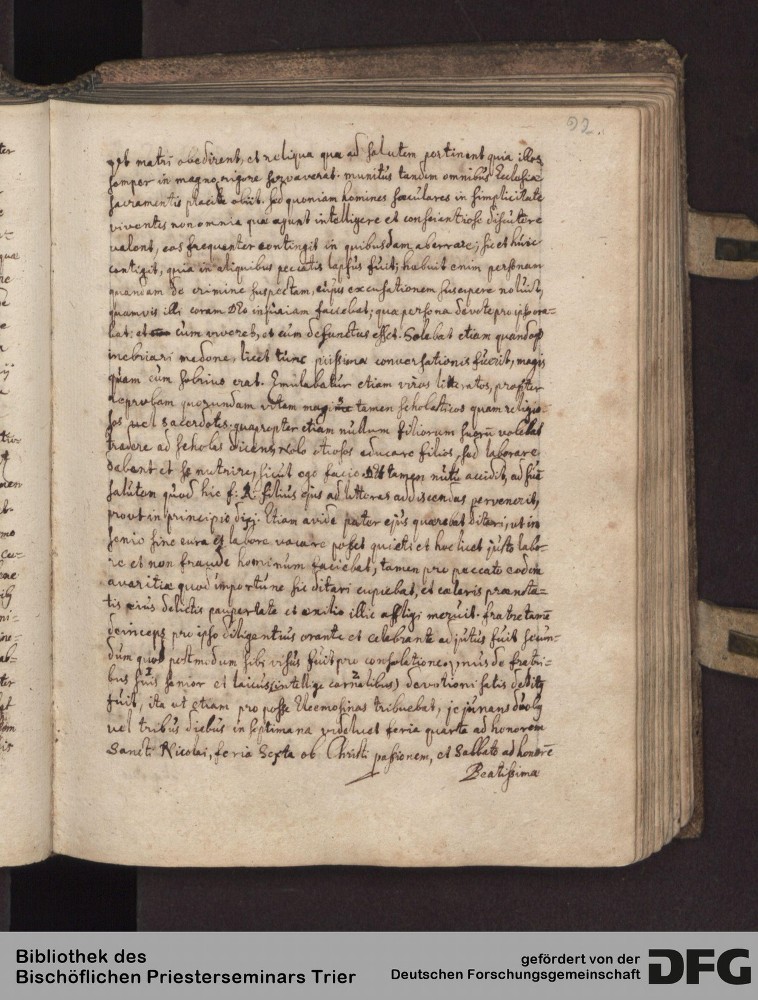 92.
ut matri obedirent, et reliqua quæ ad salutem pertinent quia illos
semper in magno rigore servaverat. munitus tandem omnibus Ecclesiæ
sacramentis placide obiit. sed quoniam homines sæculares in simplicitate
viventes non omnia quæ agunt intelligere et conscientiose discutere
valent, eos frequenter contingit in quibusdam aberrare; sic et huic
contigit, quia in aliquibus peccatis lapsus fuit; habuit enim personam
quandam de crimine suspectam, cujus excusationem suscipere noluit,
quamvis illi coram Deo injuriam faciebat; quæ persona devote pro ipso ora=
bat; et cum viveret, et cum defunctus esset. Solebat etiam quandoq
inebriari medone, licet tunc piissimæ conversationis fuerit, magis
quam cum sobrius erat. Æmulabatur etiam viros litteratos, propter
reprobam quorundam vitam magis tamen scholasticos quam religio=
sos vel sacerdotes. quapropter etiam nullum filiorum suorū volebat
tradere ad scholas dicens, nolo otiosos educare filios, sed laborare
debent et se nutrire, sicut ego facio. tamen nutu accidit, ad suæ
salutem quod hic f: R: filius ejus ad litteras addiscendas pervenerit,
prout in principio dixi. Etiam avide pater ejus quærebat ditari, ut in
senio sine cura et labore vacare posset quieti et hoc licet justo labo=
re et non fraude hominum faciebat, tamen pro peccato eodem
avaritiæ quod importune sic ditari cupiebat, et cæteris prænota=
tis ejus delictis paupertate et exilio illic affligi meruit. fratre tamē
deinceps pro ipso diligentius orante et celebrante adjutus fuit secun=
dum quod postmodum sibi visus fuit pro consolatione. unus de fratri=
bus suis senior et laicus (intellige carnalibus) devotioni satis deditq
fuit, ita ut etiam pro posse Eleemosinas tribuebat, jejunans duobq
vel tribus diebus in septimana videlicet feria quarta ad honorem
Sancti Nicolai, feria Sexta ob Christi passionem, et Sabbato ad honorē
Beatissimæ
Bibliothek des
Bischöflichen Priesterseminars Trier
gefördert von der
Deutschen Forschungsgemeinschaft
DFG